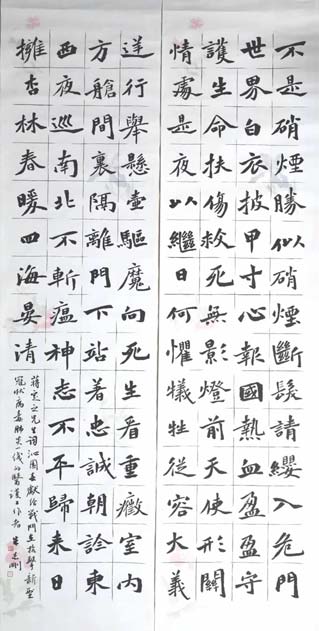 不是硝煙勝似硝煙斷髮請纓入危門
世界白衣披甲寸心報國熱血盈盈守
護生命扶傷救死無影燈前天使形關
情處是夜以繼日何懼犧牲從容大義
逆行舉懸壺驅魔向死生看重癥室內
方艙間裏隔離門下站著忠誠朝診東
西夜巡南北不斬瘟神志不平歸來日
擁杏林春暖四海晏清
蔣定之先生詞沁園春獻給戰鬥在抗擊新型
冠狀病毒肺炎一線的醫護工作者